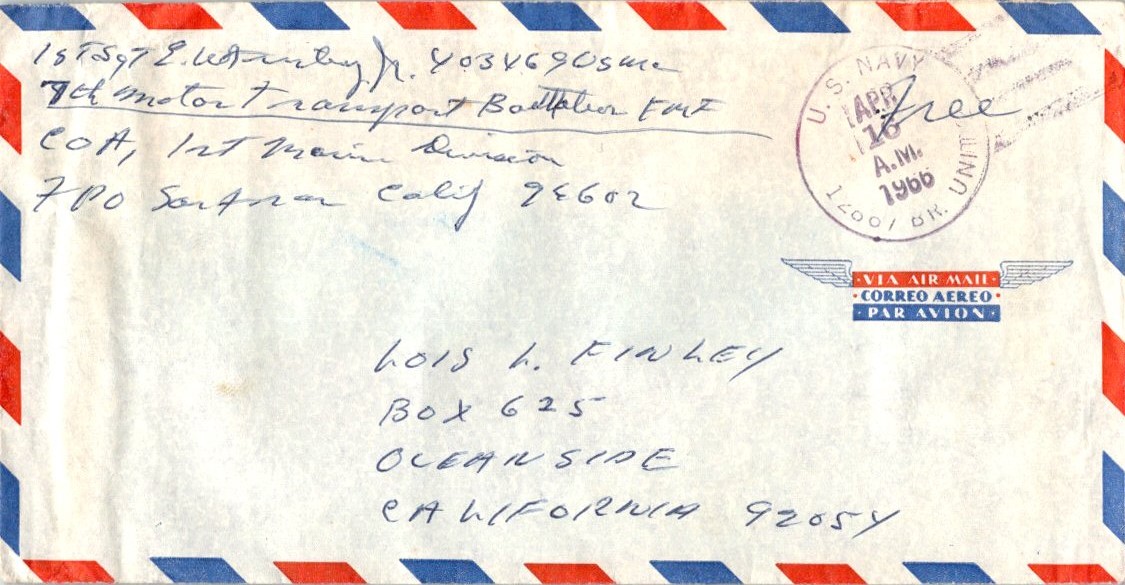 1stSgt E. W. Jr. 403469 USMC
7th Motor Transport Battalion FMF
CO A, 1st Marine Division
FPO San Fran Calif 96602
Free
U.S. NAVY
APR
16
A.M.
1966
17001 BR. UNIT
VIA AIR MAIL
CORREO AEREO
PAR AVION
LOIS L. FINLEY
BOX 625
OCEANSIDE
CALIFORNIA 92054